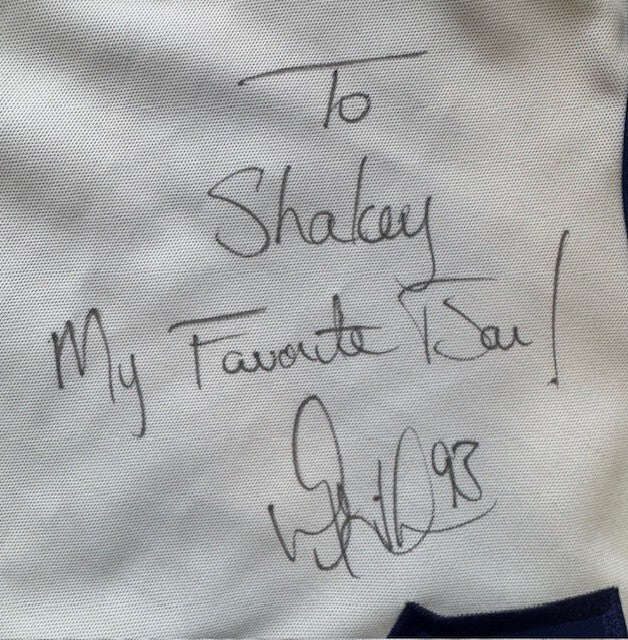 To
Shakey
My Favorite Tsar!
93